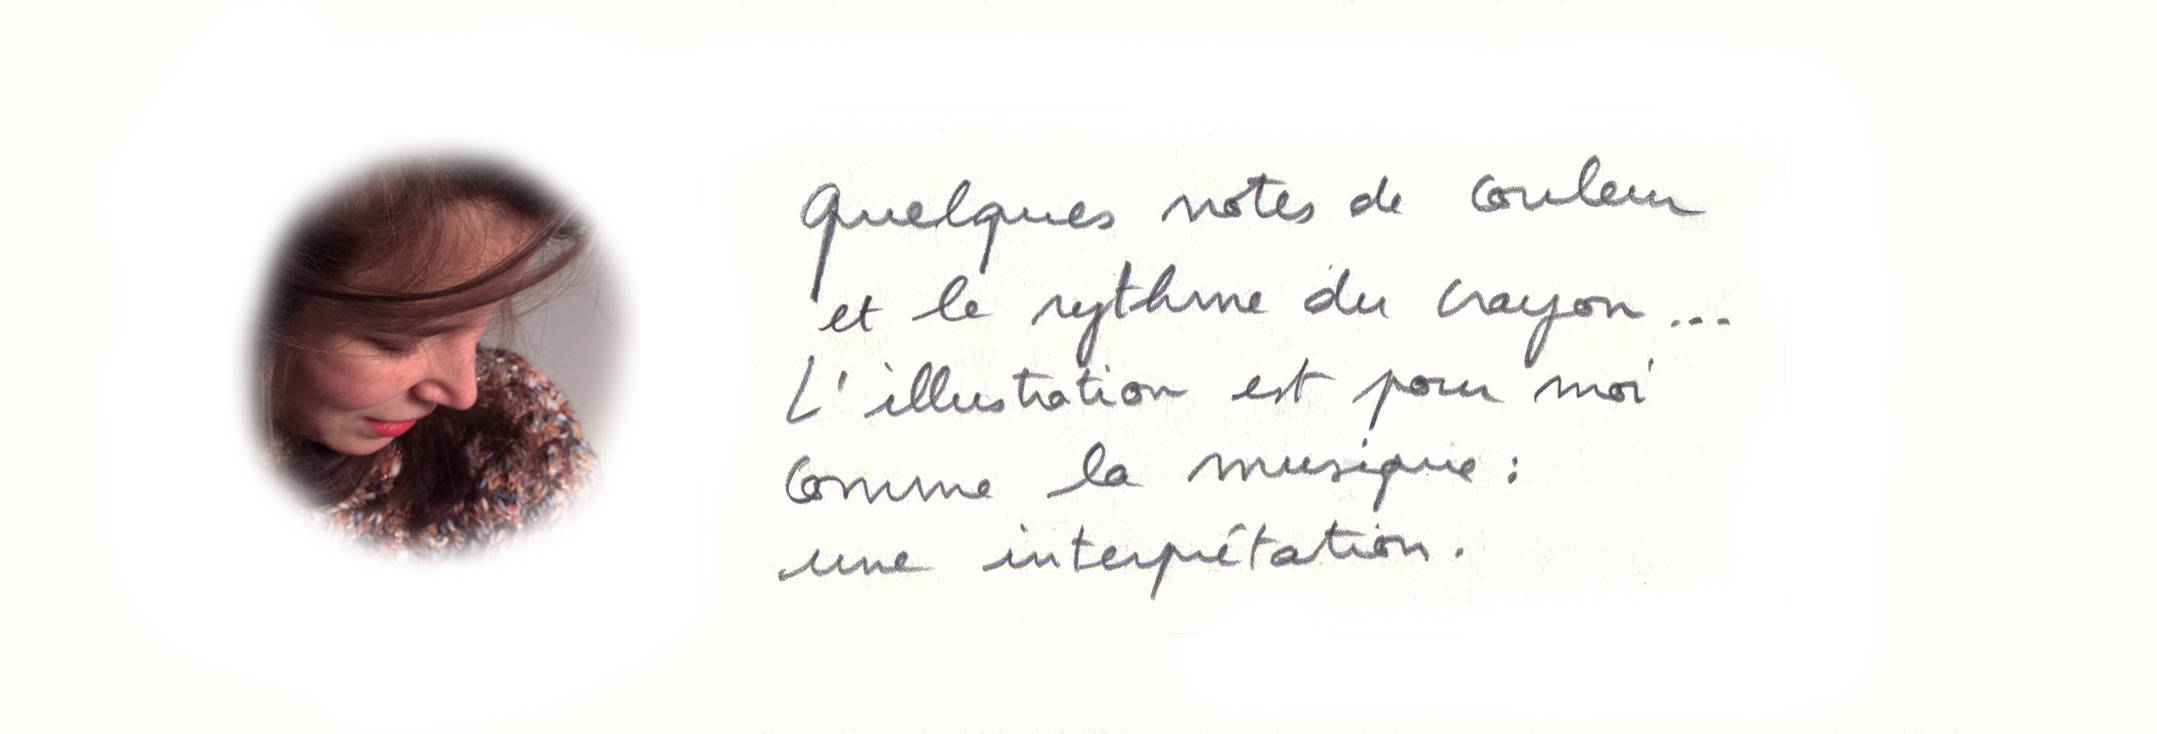 Quelques notes de couleur
et le rythme du crayon...
L'illustration est pour moi
comme la musique :
une interprétation.